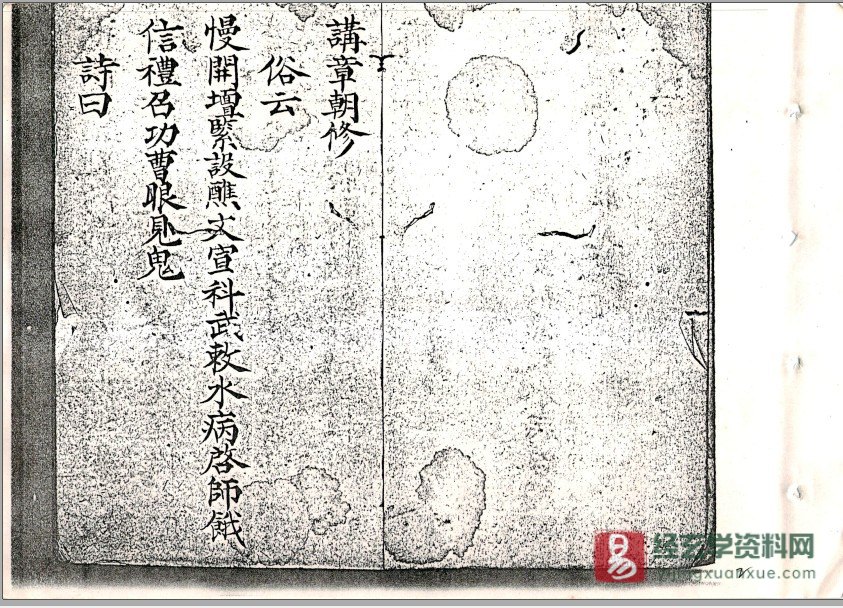 講章朝修
俗云
慢開壇緊設醮文宣科武敕水病啓師餓
信禮召功曹眼見鬼
詩曰
易
经玄学资料网
yijingxuanxue.com